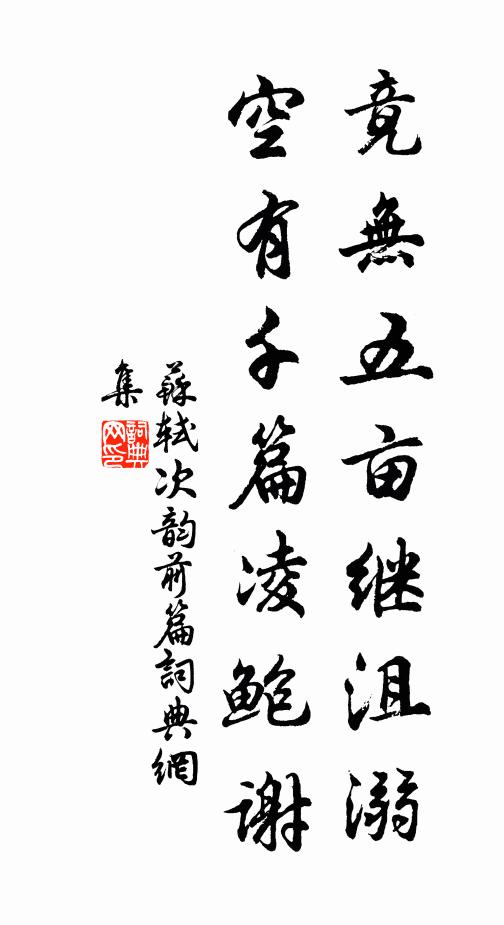 竟無五亩继沮溺
空有千篇凌鲍谢
蘇軾次韵前篇詞典網
集
詞典
网印